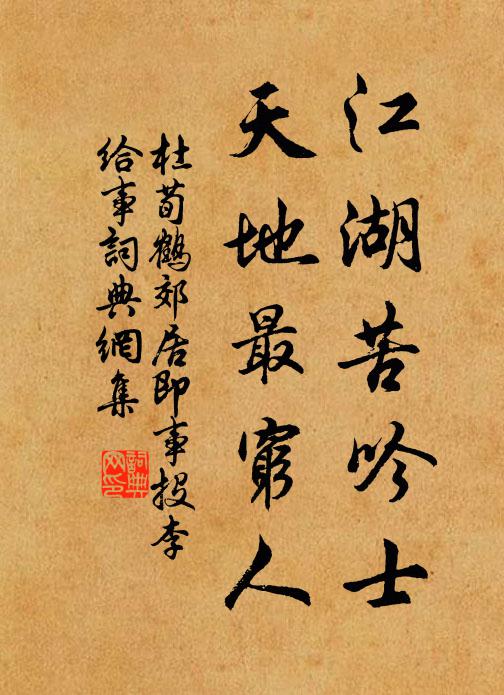 江湖苦吟士
天地最窮人
杜荀鶴郊居即事投李
給事詞典網集
詞典網印